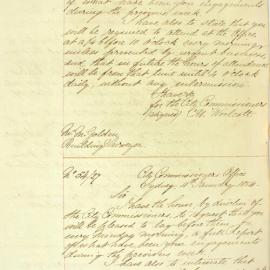 of what have been your engagements
during the previous week.
I have also to state that you
will be required to attend at the Office
at before 10 o'Clock every morning
unless prevented by urgent business
and, that in future the hours of attendance
will be from that hour until 4 o'Clock
daily, without any intermission
I have &c
for the City Commissioners
(signed) C. H. Woolcott
Mr Jas Golden
Building Surveyor
No 54/27
City Commissioners Office
Sydney January 1854
Sir,
I have the honor by direction of
the City Commissioners to request that you
will be pleased to lay before them,
every Monday morning, a full report
of what have been your engagements
during the previous week.
I have also to intimate that